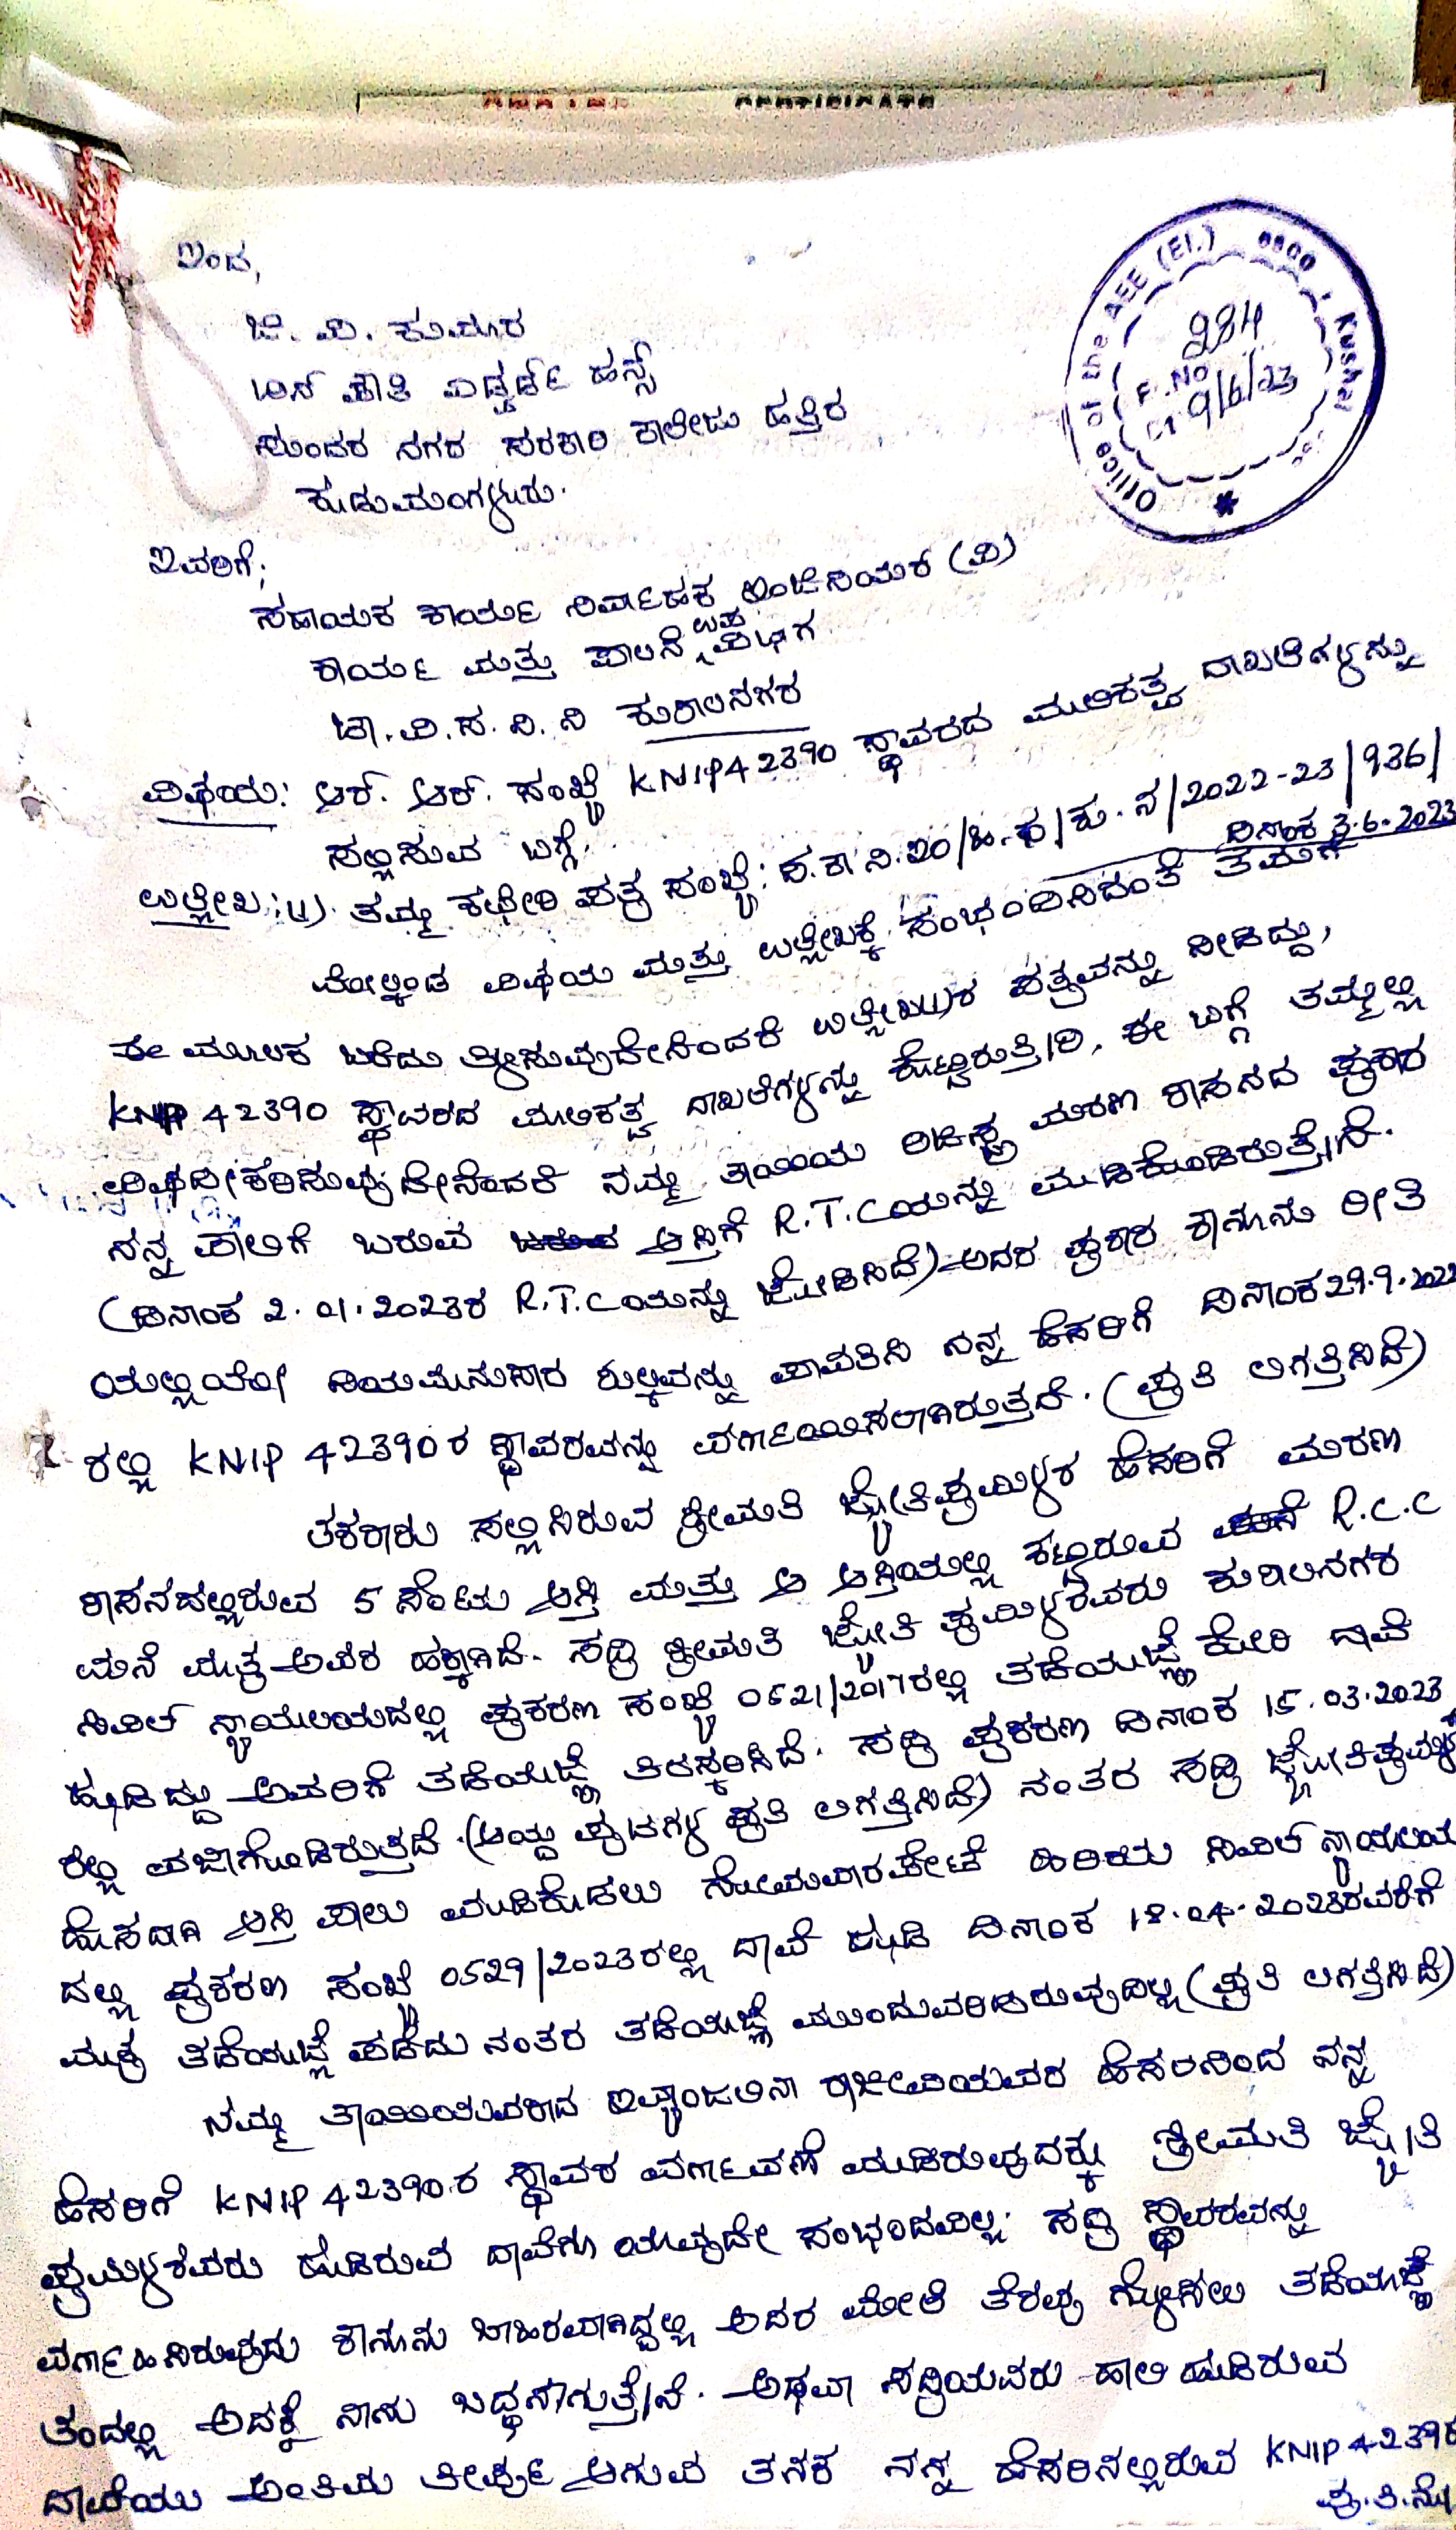 ಇಂದ,
ಜಿ. ವಿ. ಕುಮಾರ
ಹತ್ತಿರ
ಸುಂದರ ನಗರ ಸರಕಾರಿ ಕಾಲೇಜು
ಕೂಡುಮಂಗಳೂರು.
Office of the AEE (El.)
284
F. No
Dt 9/6/23
ಇವರಿಗೆ,
ಸಹಾಯಕ ಕಾರ್ಯ ನಿರ್ವಾಹಕ ಇಂಜಿನಿಯರ್ (ವಿ)
ಕಾರ್ಯ ಮತ್ತು ಪಾಲನೆ ಉಪ ವಿಭಾಗ
ಚಾ. ವಿ. ಸ. ನಿ. ನಿ ಕುಶಾಲನಗರ
ವಿಷಯ: ಆರ್. ಆರ್. ಸಂಖ್ಯೆ KNIP42390 ಸ್ಥಾವರದ ಮಾಲಿಕತ್ವ ದಾಖಲೆಗಳನ್ನು
ಸಲ್ಲಿಸುವ ಬಗ್ಗೆ.
ಉಲ್ಲೇಖ: (1). ತಮ್ಮ ಕಛೇರಿ ಪತ್ರ ಸಂಖ್ಯೆ: ಸ.ಕಾ.ನಿ.ಇಂ/ಹಿ.ಸ/ಕು.ನ/2022-23/936/
ದಿನಾಂಕ 3.6.2023
ಮೇಲ್ಕಂಡ ವಿಷಯ ಮತ್ತು ಉಲ್ಲೇಖಕ್ಕೆ ಸಂಭಂದಿಸಿದಂತೆ ತಮಗೆ
ಈ ಮೂಲಕ ಬರೆದು ತಿಳಿಸುವುದೇನೆಂದರೆ ಉಲ್ಲೇಖ(1)ರ ಪತ್ರವನ್ನು ನೀಡಿದ್ದು,
KNIP 42390 ಸ್ಥಾವರದ ಮಾಲಿಕತ್ವ ದಾಖಲೆಗಳನ್ನು ಕೇಳಿರುತ್ತೀರಿ, ಈ ಬಗ್ಗೆ ತಮ್ಮಲ್ಲಿ
ವಿಷದೀಕರಿಸುವುದೇನೆಂದರೆ ನಮ್ಮ ತಾಯಿಯ ರಿಜಿಸ್ಟ್ರ ಮರಣ ಶಾಸನದ ಪ್ರಕಾರ
ನನ್ನ ಪಾಲಿಗೆ ಬರುವ ಆಸ್ತಿಗೆ R.T.Cಯನ್ನು ಮಾಡಿಕೊಂಡಿರುತ್ತೇನೆ.
(ದಿನಾಂಕ 2.01.2023ರ R.T.Cಯನ್ನು ಜೋಡಿಸಿದೆ) ಅದರ ಪ್ರಕಾರ ಕಾನೂನು ರೀತಿ
ಯಲ್ಲಿಯೇ ನಿಯಮಾನುಸಾರ ಶುಲ್ಕವನ್ನು ಪಾವತಿಸಿ ನನ್ನ ಹೆಸರಿಗೆ ದಿನಾಂಕ 29.9.2022
ರಲ್ಲಿ KNIP 42390ರ ಸ್ಥಾವರವನ್ನು ವರ್ಗಾಯಿಸಲಾಗಿರುತ್ತದೆ. (ಪ್ರತಿ ಲಗತ್ತಿಸಿದೆ)
ತಕರಾರು ಸಲ್ಲಿಸಿರುವ ಶ್ರೀಮತಿ ಜ್ಯೋತಿಪ್ರಮೀಳರ ಹೆಸರಿಗೆ ಮರಣ
ಶಾಸನದಲ್ಲಿರುವ 5 ಸೆಂಟು ಆಸ್ತಿ ಮತ್ತು ಆ ಆಸ್ತಿಯಲ್ಲಿ ಕಟ್ಟಿರುವ R.C.C
ಮನೆ ಮಾತ್ರ ಅವರ ಹಕ್ಕಾಗಿದೆ. ಸದ್ರಿ ಶ್ರೀಮತಿ ಜ್ಯೋತಿ ಪ್ರಮೀಳರವರು ಕುಶಾಲನಗರ
ಸಿವಿಲ್ ನ್ಯಾಯಾಲಯದಲ್ಲಿ ಪ್ರಕರಣ ಸಂಖ್ಯೆ 0521/2017ರಲ್ಲಿ ತಡೆಯಾಜ್ಞೆ ಕೋರಿ ದಾವೆ
ಹೂಡಿದ್ದು ಅವರಿಗೆ ತಡೆಯಾಜ್ಞೆ ತಿರಸ್ಕರಿಸಿದೆ. ಸದ್ರಿ ಪ್ರಕರಣ ದಿನಾಂಕ 15.03.2023
ರಲ್ಲಿ ವಜಾಗೊಂಡಿರುತ್ತದೆ. (ಆಯ್ದ ಪುಟಗಳ ಪ್ರತಿ ಲಗತ್ತಿಸಿದೆ) ನಂತರ ಸದ್ರಿ ಜ್ಯೋತಿಪ್ರಮೀಳ
ಹೊಸದಾಗಿ ಆಸ್ತಿ ಪಾಲು ಮಾಡಿಕೊಡಲು ಸೋಮವಾರಪೇಟೆ ಹಿರಿಯ ಸಿವಿಲ್ ನ್ಯಾಯಾಲಯ
ದಲ್ಲಿ ಪ್ರಕರಣ ಸಂಖ್ಯೆ 0529/2023ರಲ್ಲಿ ದಾವೆ ಹೂಡಿ ದಿನಾಂಕ 18.04.2023ರವರೆಗೆ
ಮಾತ್ರ ತಡೆಯಾಜ್ಞೆ ಪಡೆದು ನಂತರ ತಡೆಯಾಜ್ಞೆ ಮುಂದುವರಿದಿರುವುದಿಲ್ಲ (ಪ್ರತಿ ಲಗತ್ತಿಸಿದೆ)
ನಮ್ಮ ತಾಯಿಯವರಾದ ರಾಜೀವಿಯವರ ಹೆಸರಿನಿಂದ ನನ್ನ
ಹೆಸರಿಗೆ KNIP 42390.ರ ಸ್ಥಾವರ ವರ್ಗಾವಣೆ ಮಾಡಿರುವುದಕ್ಕು ಶ್ರೀಮತಿ ಜ್ಯೋತಿ
ಪ್ರಮೀಳರವರು ಹೂಡಿರುವ ದಾವೆಗೂ ಯಾವುದೇ ಸಂಭಂದವಿಲ್ಲ. ಸದ್ರಿ ಸ್ಥಾವರವನ್ನು
ವರ್ಗಾಹಿಸಿರುವುದು ಕಾನೂನು ಬಾಹಿರವಾಗಿದ್ದಲ್ಲಿ ಅದರ ಮೇಲೆ ತೆರವು ಗೊಳಿಸಲು ತಡೆಯಾಜ್ಞೆ
ತಂದಲ್ಲಿ ಅದಕ್ಕೆ ನಾನು ಬದ್ಧನಾಗುತ್ತೇನೆ. ಅಥವಾ ಸದ್ರಿಯವರು ಹಾಲಿ ಹೂಡಿರುವ
ದಾವೆಯು ಅಂತಿಮ ತೀರ್ಪು ಆಗುವ ತನಕ ನನ್ನ ಹೆಸರಿನಲ್ಲಿರುವ KNIP 42390
ಪು.ತಿ.ನೋ